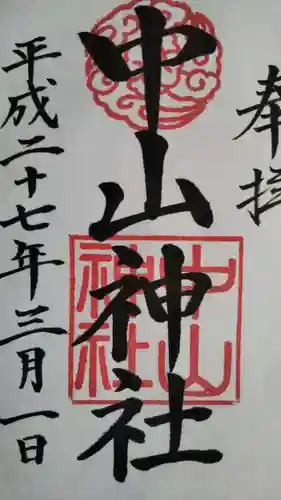 奉拝
中山神社
中山神社
平成二十七年三月一日